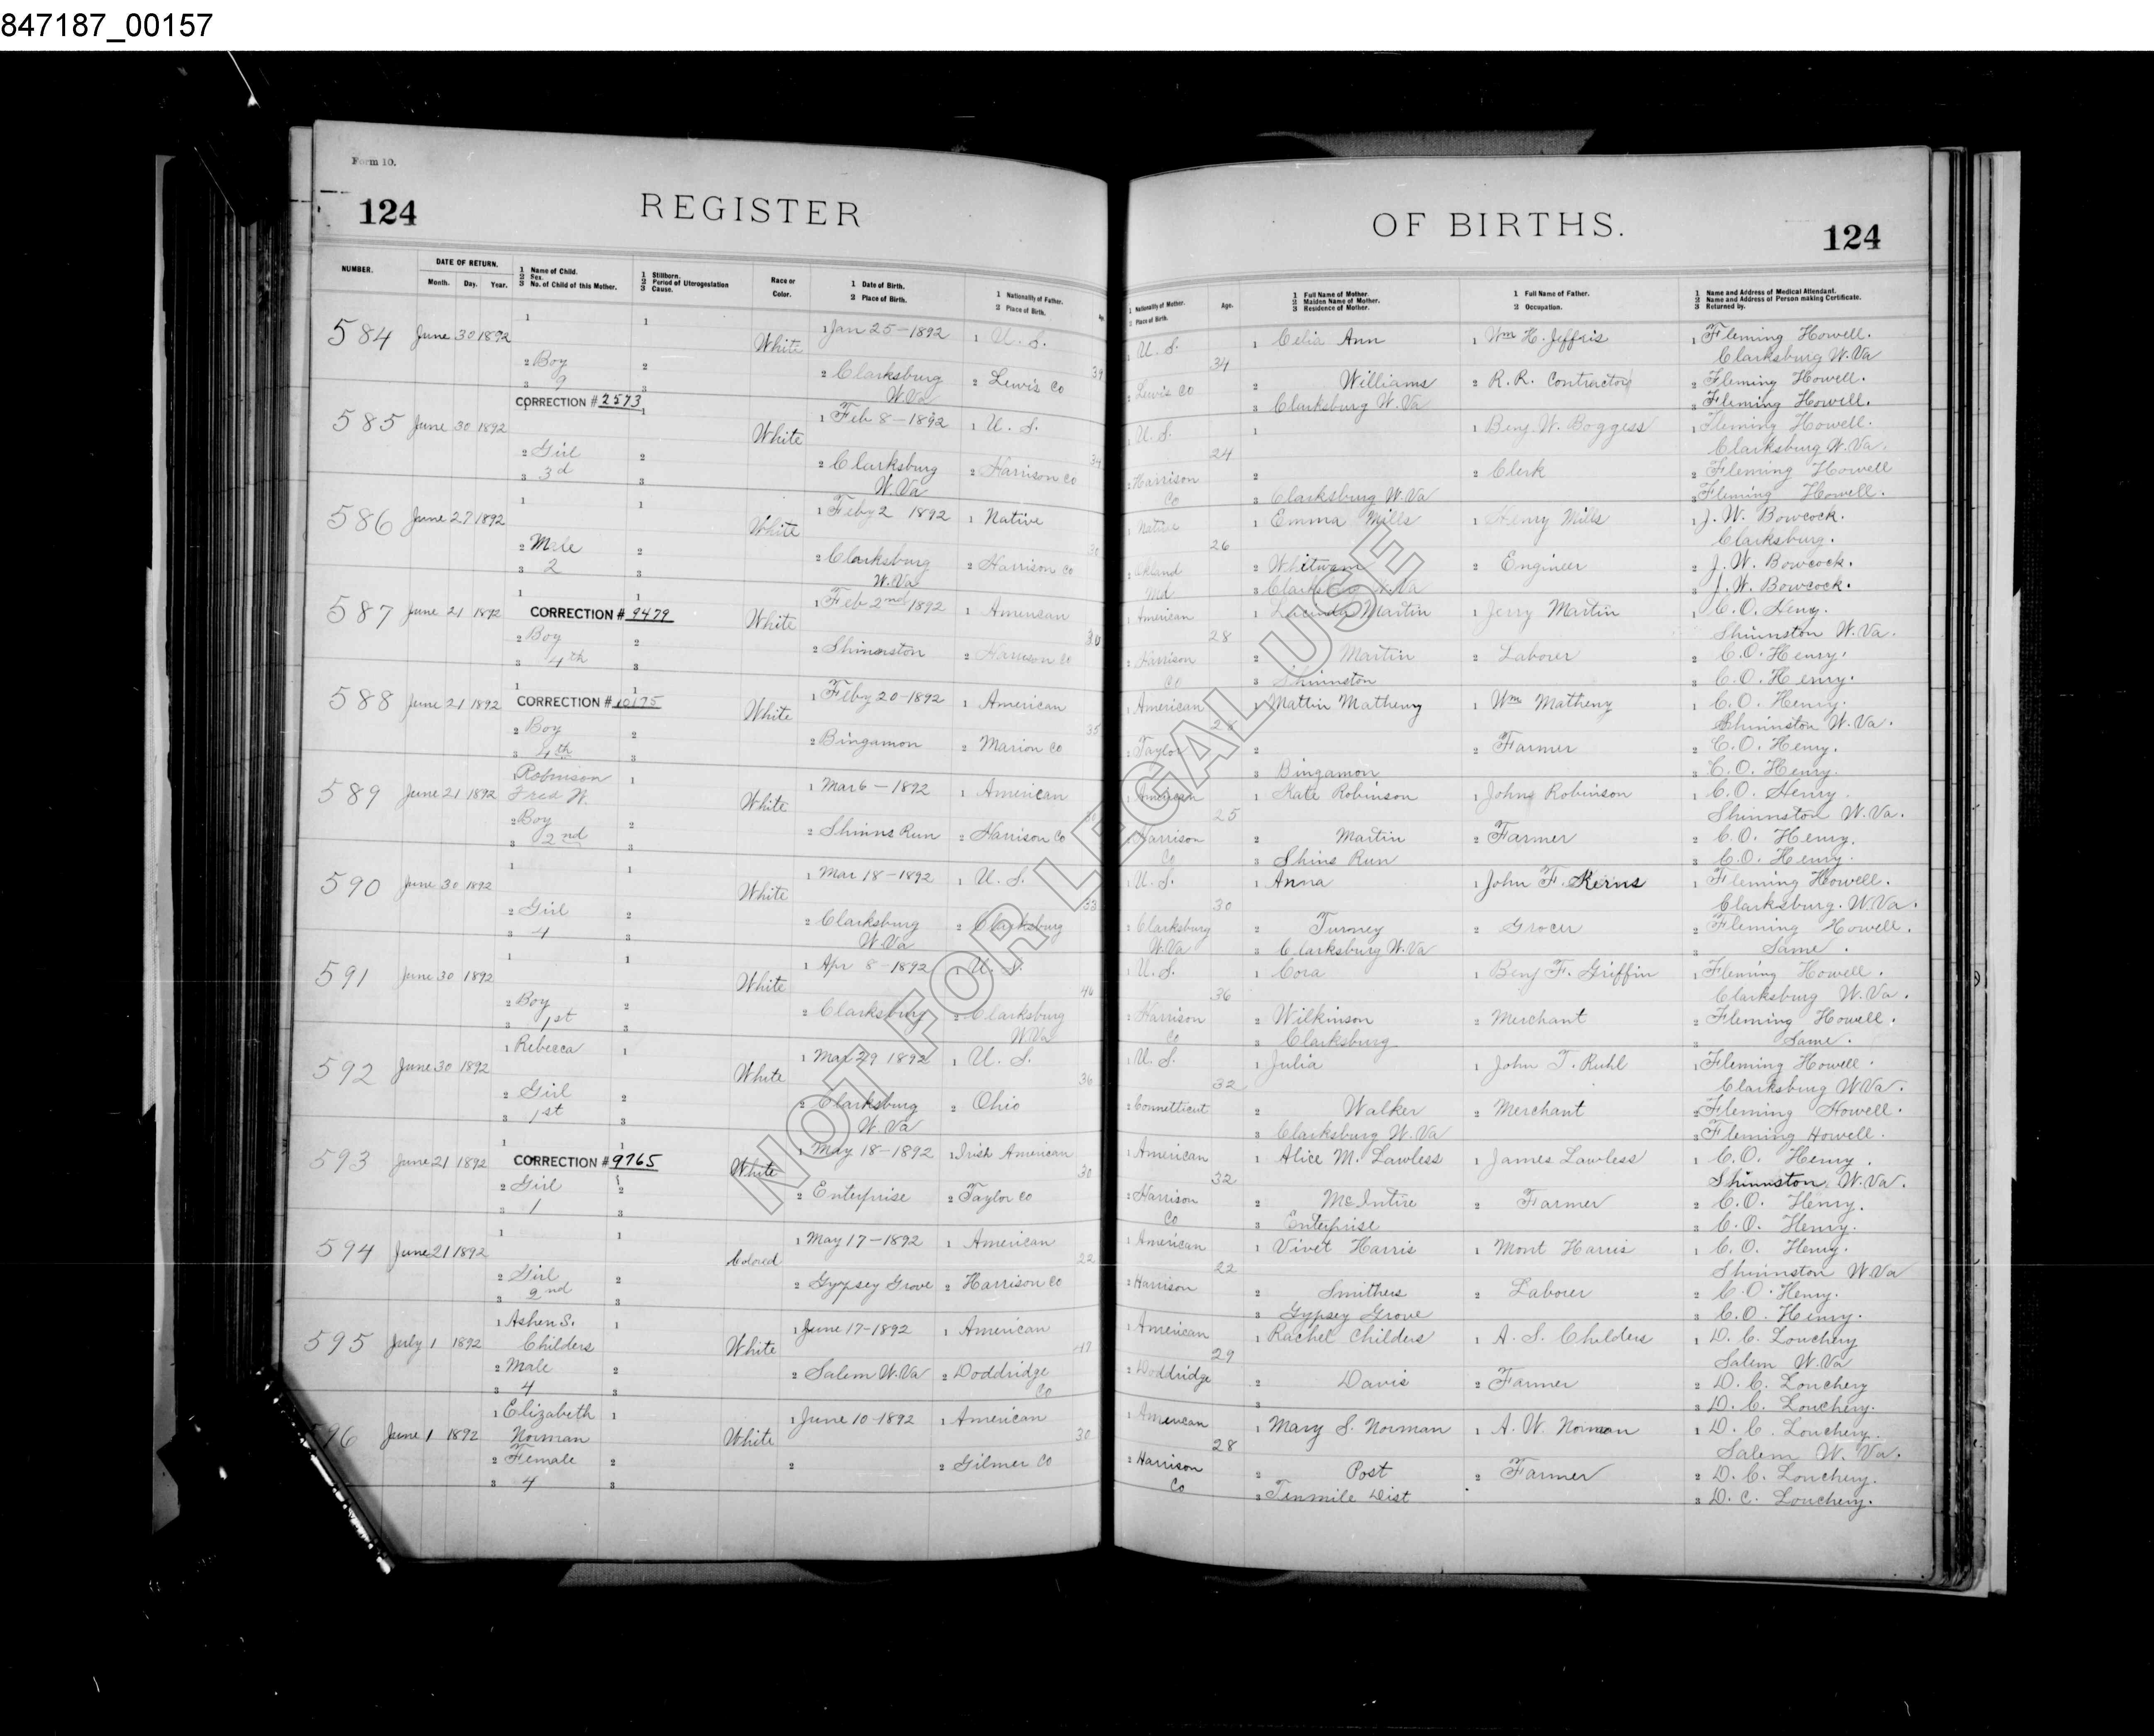 847187_00157
Form 10.
124 REGISTER OF BIRTHS. 124
NUMBER.
DATE OF RETURN.
Month. Day. Year.
1 Name of Child.
2 Sex.
3 No. of Child of this Mother.
1 Stillborn.
2 Period of Uterogestation
3 Cause.
Race or
Color.
1 Date of Birth.
2 Place of Birth.
1 Nationality of Father.
2 Place of Birth.
1 Nationality of Mother.
2 Place of Birth.
Age.
1 Full Name of Mother.
2 Maiden Name of Mother.
3 Residence of Mother.
1 Full Name of Father.
2 Occupation.
1 Name and Address of Medical Attendant.
2 Name and Address of Person making Certificate.
3 Returned by.
584 June 30 1892 1 1 White 1 Jan 25-1892 1 U. S. 1 U. S. 34 1 Celia Ann 1 Wm H. Jeffris 1 Fleming Howell.
Clarksburg W.Va
2 Boy 2 2 Clarksburg 2 Lewis Co 2 Lewis Co 2 Williams 2 R. R. Contractor 2 Fleming Howell.
3 9 3 W.Va 3 Clarksburg W.Va 3 Fleming Howell.
CORRECTION # 2573
585 June 30 1892 1 White 1 Feb 8-1892 1 U. S. 1 U. S. 24 1 1 Benj. W. Boggess 1 Fleming Howell.
Clarksburg W.Va.
2 Girl 2 2 Clarksburg 2 Harrison Co 2 Harrison 2 2 Clerk 2 Fleming Howell
3 3d 3 W.Va Co 3 Clarksburg W.Va 3 Fleming Howell.
586 June 27 1892 1 1 White 1 Feby 2 1892 1 Native 1 Native 26 1 Emma Mills 1 Henry Mills 1 J. W. Bowcock.
Clarksburg.
2 Male 2 2 Clarksburg 2 Harrison Co 2 2 2 Engineer 2 J. W. Bowcock.
3 2 3 W.Va Md 3 Clarksburg W.Va 3 J. W. Bowcock.
587 June 21 1892 1 1 CORRECTION # 9479 White 1 Feb 2nd 1892 1 American 30 1 American 28 1 Lucinda Martin 1 Jerry Martin 1 C. O. Heny.
Shinnston W.Va.
2 Boy 2 2 Shinnston 2 Harrison Co 2 Harrison 2 Martin 2 Laborer 2 C. O. Henry.
3 4th 3 Co 3 Shinnston 3 C. O. Henry.
588 June 21 1892 1 1 CORRECTION # 10175 White 1 Feby 20-1892 1 American 35 1 American 28 1 Mattin Matheny 1 Wm Matheny 1 C. O. Henry.
Shinnston W.Va.
2 Boy 2 2 Bingamon 2 Marion Co 2 Taylor 2 2 Farmer 2 C. O. Henry.
3 4th 3 3 Bingamon 3 C. O. Henry.
589 June 21 1892 1 Robinson 1 White 1 Mar 6-1892 1 American 1 American 25 1 Kate Robinson 1 John Robinson 1 C. O. Henry.
Fred W. Shinnston W.Va.
2 Boy 2 2 Shinns Run 2 Harrison Co 2 Harrison 2 Martin 2 Farmer 2 C. O. Henry.
3 2nd 3 Co 3 Shins Run 3 C. O. Henry.
590 June 30 1892 1 1 White 1 Mar 18-1892 1 U. S. 33 1 U. S. 30 1 Anna 1 John F. Kerns 1 Fleming Howell.
Clarksburg. W.Va.
2 Girl 2 2 Clarksburg 2 Clarksburg 2 Clarksburg 2 Turney 2 Grocer 2 Fleming Howell.
3 4 3 W.Va W.Va 3 Clarksburg W.Va 3 Same.
591 June 30 1892 1 1 White 1 Apr 8-1892 1 U. S. 46 1 U. S. 36 1 Cora 1 Benj F. Griffin 1 Fleming Howell.
Clarksburg W.Va.
2 Boy 2 2 Clarksburg 2 Clarksburg 2 Harrison 2 Wilkinson 2 Merchant 2 Fleming Howell.
3 1st 3 W.Va Co 3 Clarksburg 3 Same.
592 June 30 1892 1 Rebecca 1 White 1 Mar 29 1892 1 U. S. 36 1 U. S. 32 1 Julia 1 John T. Ruhl 1 Fleming Howell.
Clarksburg W.Va.
2 Girl 2 2 Clarksburg 2 Ohio 2 Connetticut 2 Walker 2 Merchant 2 Fleming Howell.
3 1st 3 W.Va 3 Clarksburg W.Va 3 Fleming Howell.
593 June 21 1892 1 1 CORRECTION # 9765 White 1 May 18-1892 1 Irish American 30 1 American 32 1 Alice M. Lawless 1 James Lawless 1 C. O. Henry.
Shinnston W.Va.
2 Girl 2 2 Enterprise 2 Taylor Co 2 Harrison 2 McIntire 2 Farmer 2 C. O. Henry.
3 1 3 Co 3 Enterprise 3 C. O. Henry.
594 June 21 1892 1 1 Colored 1 May 17-1892 1 American 22 1 American 22 1 Vivet Harris 1 Mont Harris 1 C. O. Henry.
Shinnston W.Va
2 Girl 2 2 Gypsey Grove 2 Harrison Co 2 Harrison 2 Smithers 2 Laborer 2 C. O. Henry.
3 2nd 3 3 Gypsey Grove 3 C. O. Henry.
595 July 1 1892 1 Ashen S. 1 White 1 June 17-1892 1 American 47 1 American 29 1 Rachel Childers 1 A. S. Childers 1 D. C. Louchery
Childers Salem W.Va
2 Male 2 2 Salem W.Va 2 Doddridge 2 Doddridge 2 Davis 2 Farmer 2 D. C. Louchery
3 4 3 Co 3 3 D. C. Louchery.
596 June 1 1892 1 Elizabeth 1 White 1 June 10-1892 1 American 30 1 American 28 1 Mary S. Norman 1 A. W. Norman 1 D. C. Louchery.
Norman Salem W. Va.
2 Female 2 2 2 Gilmer Co 2 Harrison 2 Post 2 Farmer 2 D. C. Louchery.
3 4 3 Co 3 Tenmile Dist 3 D. C. Louchery.
NOT FOR LEGAL USE